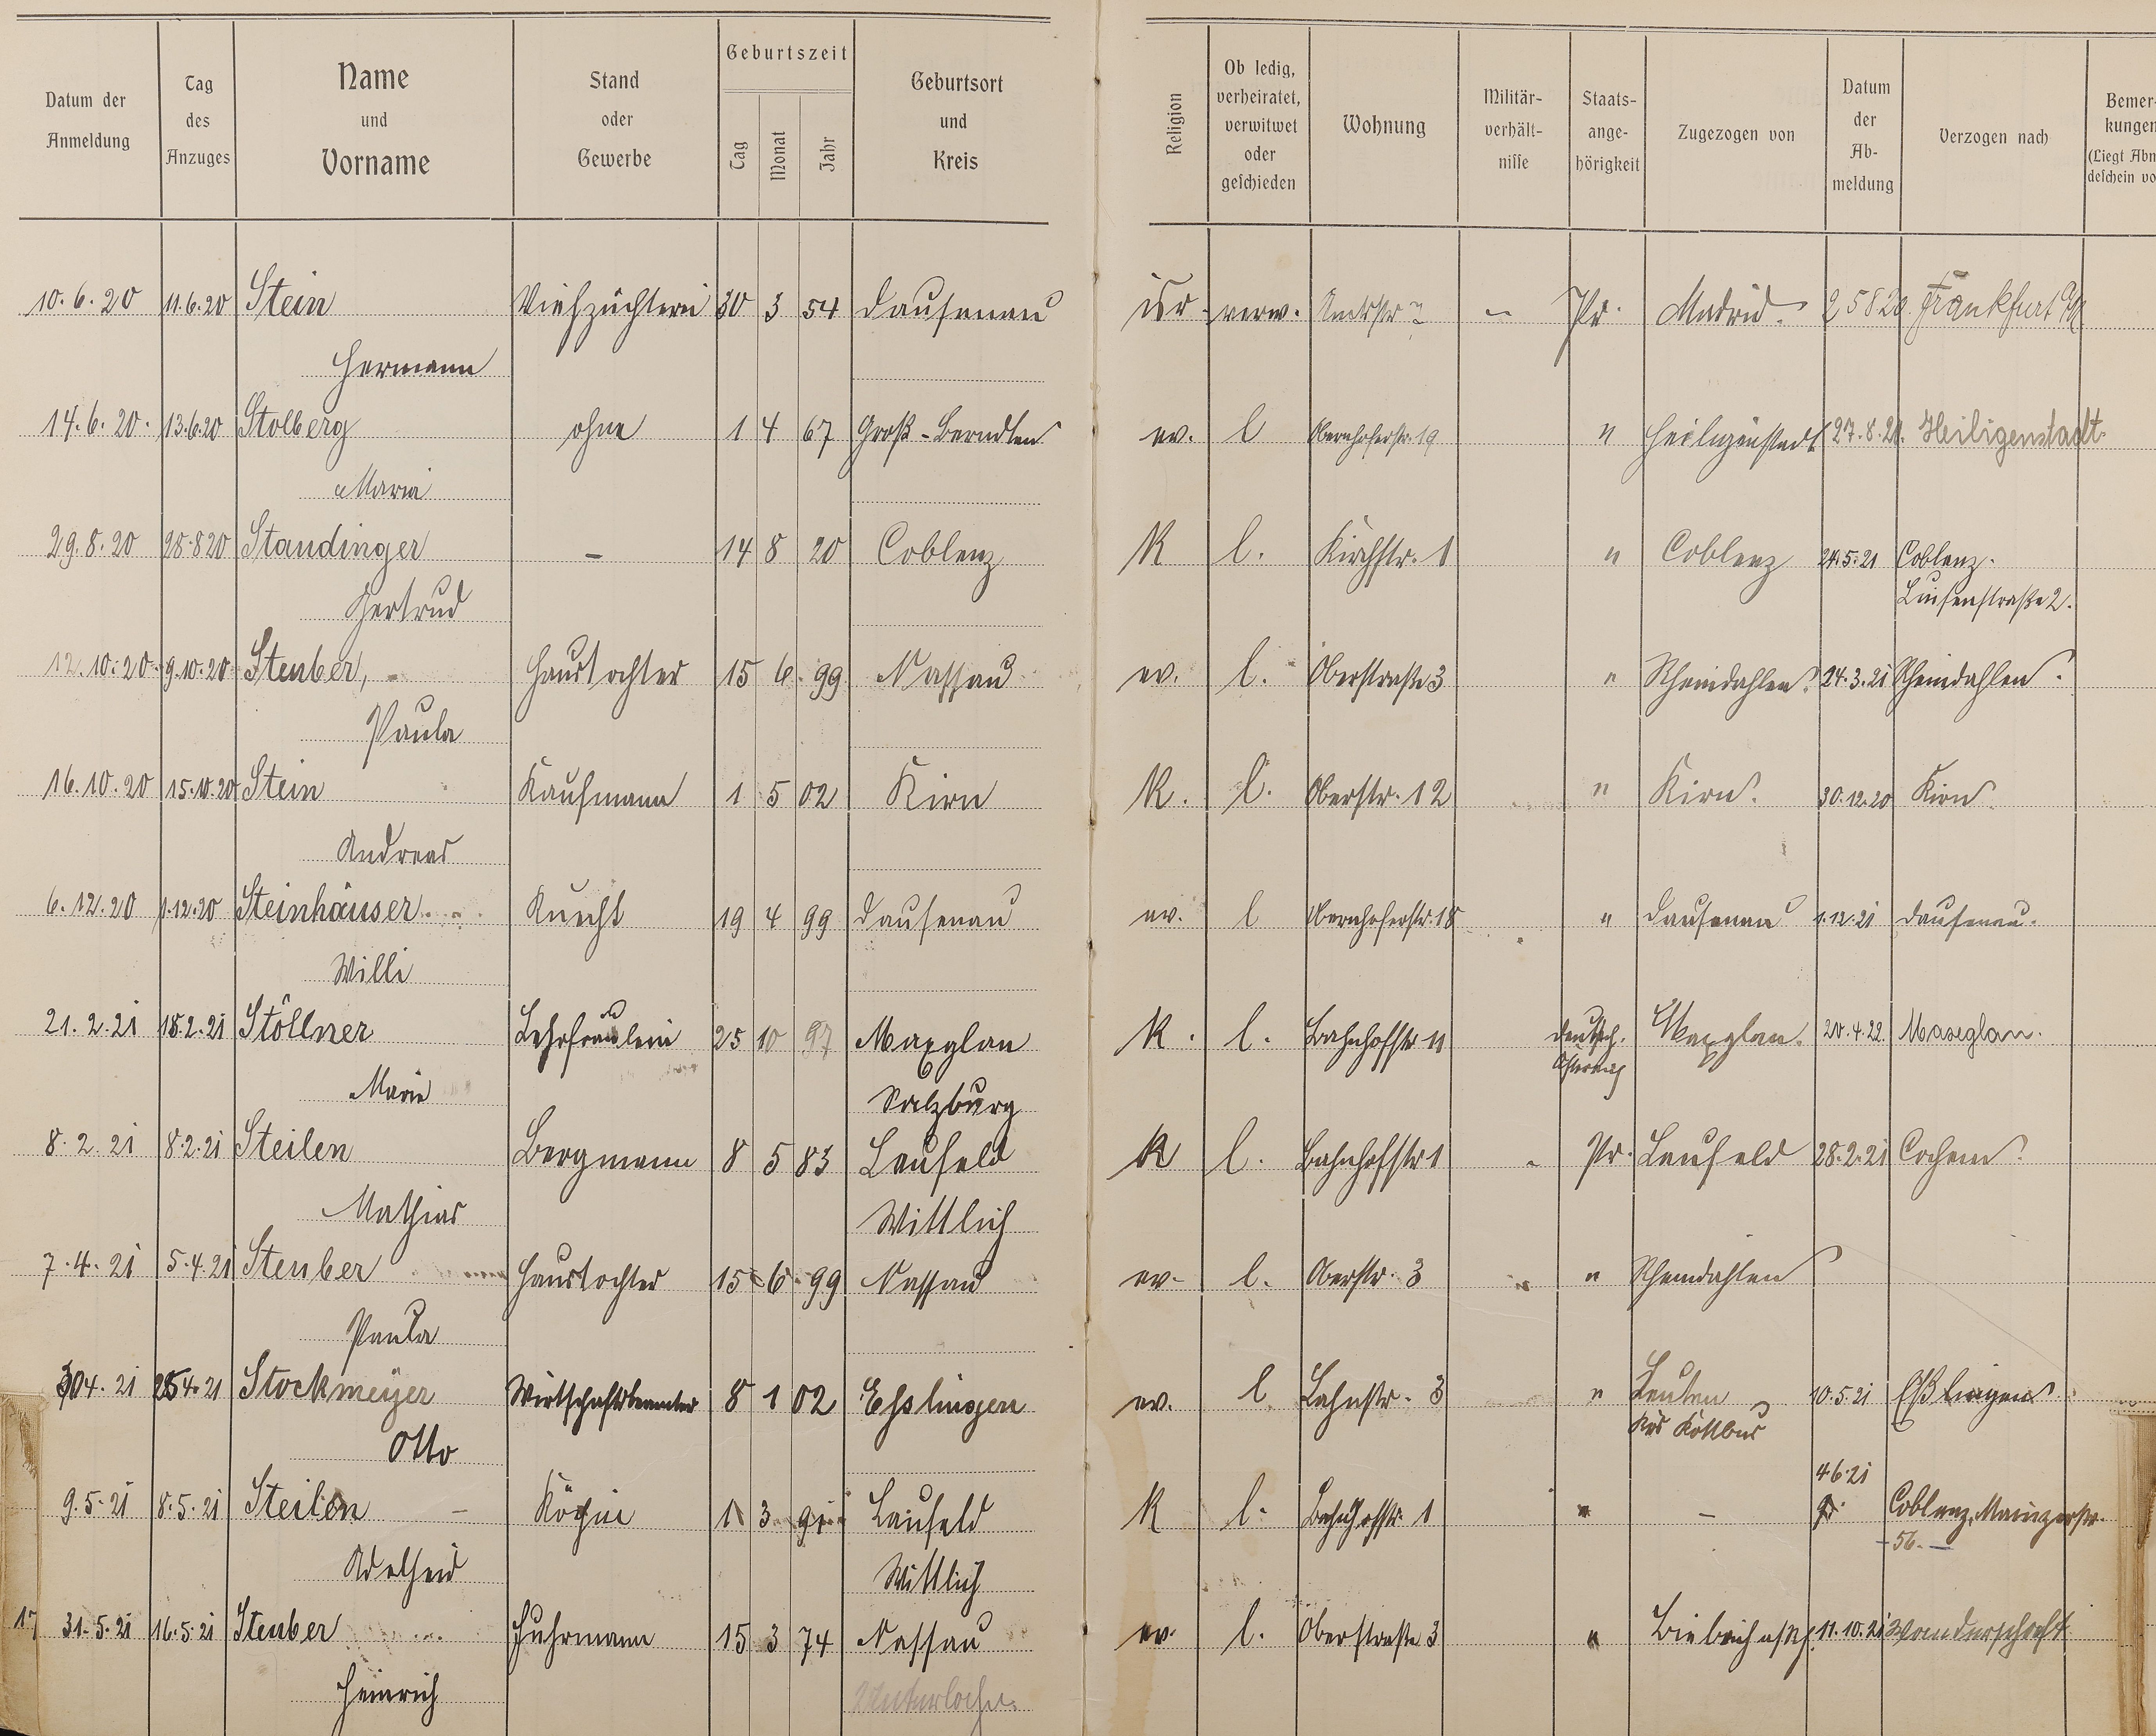 Datum der Anmeldung
Tag des Anzuges
Name und Vorname
Stand oder Gewerbe
Geburtszeit
Tag Monat Jahr
Geburtsort und Kreis
Religion
Ob ledig, verheiratet, verwitwet oder geschieden
Wohnung
Militär-verhält-nisse
Staats-ange-hörigkeit
Zugezogen von
Datum der Ab-meldung
Verzogen nach
Bemer-kungen
(Liegt Abm
deschein vo
10.6.20 11.6.20 Stein Viehzüchterei 30 3 54 Dausenau isr. verw. Amtsstr - Pr. Madrid. 25820. Frankfurt a/M
Hermann
14.6.20. 13.6.20 Stolberg ohne 1 4 67 Groß-Berndten ev. l Obernhoferstr. 19 " Heiligenstadt 27.8.21. Heiligenstadt.
Maria
29.8.20 28.8.20 Staudinger - 14 8 20 Coblenz K l. Kirchstr. 1 " Coblenz 24.5.21 Coblenz.
Gertrud Luisenstraße 2.
12.10.20 9.10.20 Steuber, Haustochter 15 6. 99 Nassau ev. l. Oberstraße 3 " Rheindahlen. 24.3.21 Rheindahlen.
Paula
16.10.20 15.10.20 Stein Kaufmann 1 5 02 Kirn K. l. Oberstr. 12 " Kirn. 30.12.20 Kirn.
Andreas
6.12.20 1.12.20 Steinhäuser Knecht 19 4 99 Dausenau ev. l Obernhoferstr. 18 " Dausenau 1.12.21 Dausenau.
Willi
21.2.21 18.2.21 Stöllner Lehrfräulein 25 10 97 Maxglan K. l. Bahnhofstr 11 deutsch. Maxglan. 20.4.22. Maxeglan.
Marie Salzburg Österreich
8.2.21 8.2.21 Steilen Bergmann 8 5 83 Laufeld K l. Bahnhofstr 1 Pr. Laufeld 28.2.21 Cochem.
Mathias Wittlich
7.4.21 5.4.21 Steuber Haustochter 15 6 99 Nassau ev. l. Oberstr. 3 " Rheindahlen
Paula
30 4.21 25 4.21 Stockmeyer Wirtschaftsbeamter 8 1 02 Esslingen ev. l Lahnstr. 3 " Leuten 10.5.21 Eßlingen.
Otto Krs Kottbus
9.5.21 8.5.21 Steilen - Köchin 1 3 91 Laufeld K l. Bahnhofstr. 1 " - 4.6.21 Coblenz, Mainzerstr.
Adelheid Wittlich -56.-
17 31.5.21 16.5.21 Steuber Fuhrmann 15 3 74 Nassau ev. l. Oberstraße 3 " Biebrich a/Rh. 11.10.21 Wanderschaft
Heinrich Unterlahn.